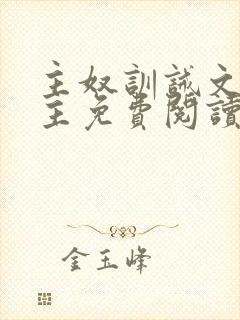 主奴訓誡文
主免費閱讀
金玉峰